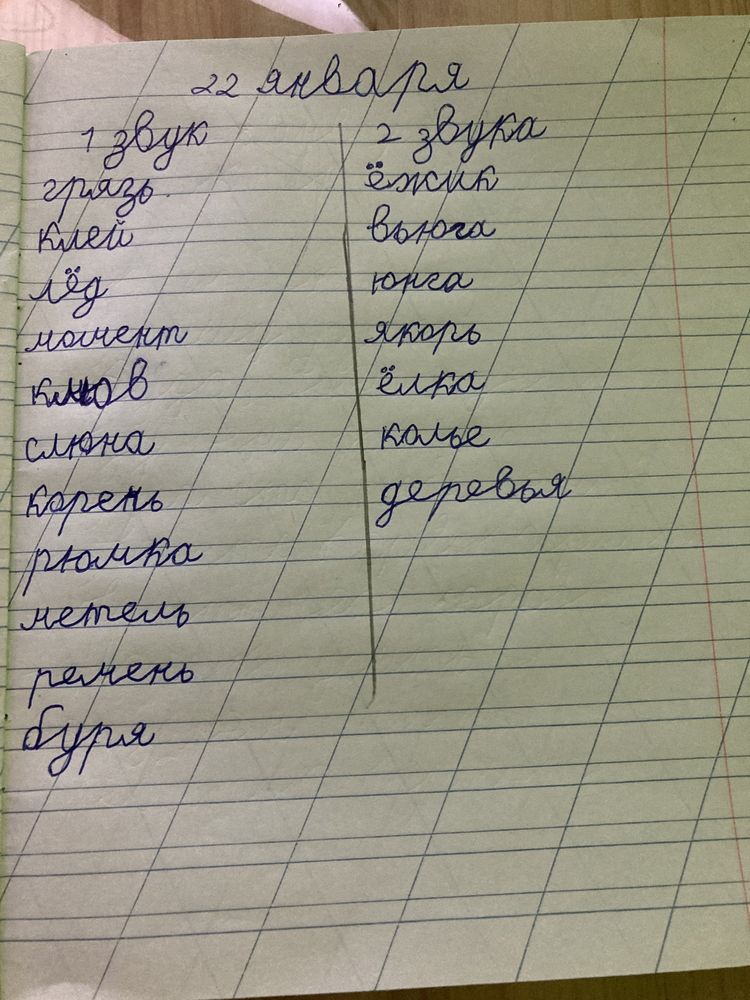 22 января
1 звук
грязь
клей
лёд
момент
клюв
слюна
корень
рюмка
метель
ремень
буря
2 звука
ёжик
вьюга
юнга
якорь
ёлка
колье
деревья